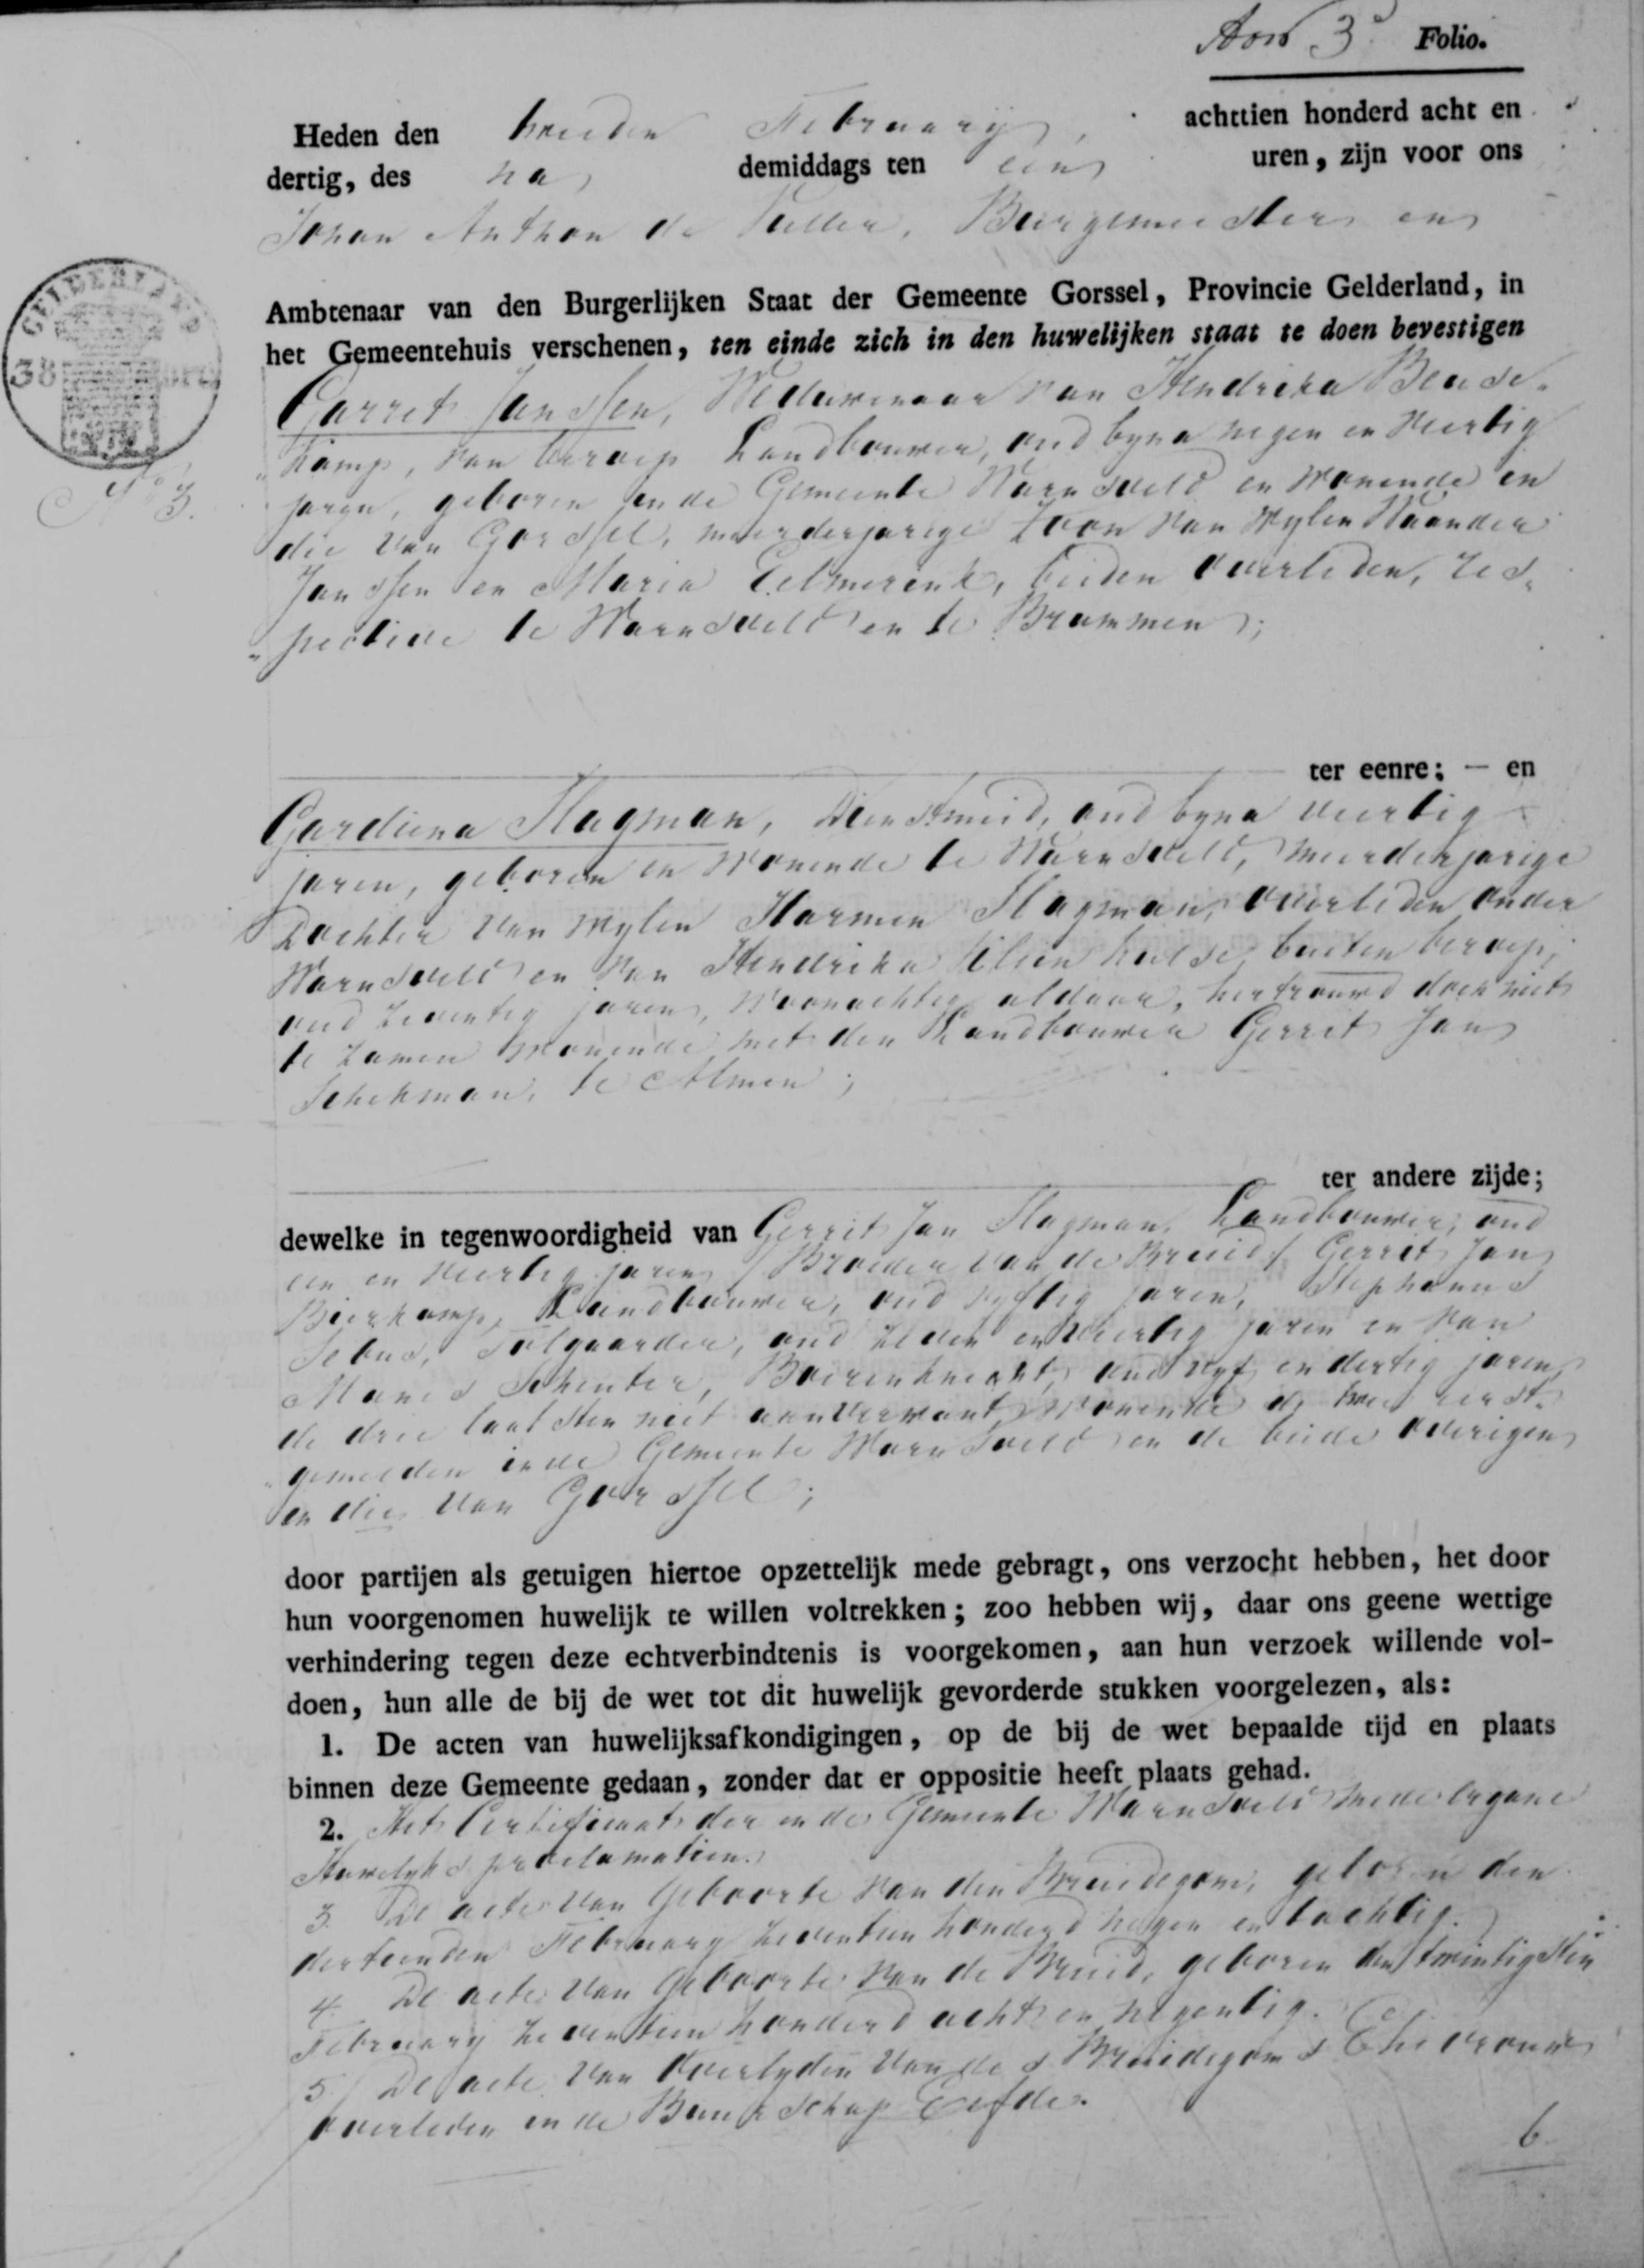 3e Folio.
Heden den tweeden February, achttien honderd acht en
dertig, des na demiddags ten een uren, zijn voor ons
Johan Anthon de Burgemeester en
GELDERLAND
38
Ambtenaar van den Burgerlijken Staat der Gemeente Gorssel, Provincie Gelderland, in
het Gemeentehuis verschenen, ten einde zich in den huwelijken staat te doen bevestigen
Garrit Janssen, Weduwenaar van Hendrika Beuse-
"kamp, van beroep Landbouwer, oud byna negen en veertig
No 3.
jaren, geboren in de Gemeente Warnsveld en wonende in
die van Gorssel, meerderjarige Zoon van wylen Waander
Janssen en Maria Eelmerink, beiden overleden, res-
"pective te Warnsveld en te Brummen;
ter eenre; — en
Gardiena Slagman, Dienstmeid, oud byna veertig
jaren, geboren en wonende te Warnsveld, meerderjarige
Dochter van wylen Harmen Slagman, overleden onder
Warnsveld en van Hendrika buiten beroep,
oud zeventig jaren, woonachtig aldaar, hertrouwd doch niet
te zamen wonende met den Landbouwer Gerrit Jan
Schekman, te Almen;
ter andere zijde;
dewelke in tegenwoordigheid van Gerrit Jan Slagman, Landbouwer, oud
een en veertig jaren / Broeder van de Bruid / Gerrit Jan
Bierkamp, Landbouwer, oud vyftig jaren, Stephanus
Sebus, Tolgaarder, oud zeven en veertig jaren en van
Manes Schenter, Boerenknecht, oud vyf en dertig jaren,
de drie laatsten niet aanverwant, wonende de twee eerst-
"gemelden in de Gemeente Warnsveld en de beide overigen
in die van Gorssel;
door partijen als getuigen hiertoe opzettelijk mede gebragt, ons verzocht hebben, het door
hun voorgenomen huwelijk te willen voltrekken; zoo hebben wij, daar ons geene wettige
verhindering tegen deze echtverbindtenis is voorgekomen, aan hun verzoek willende vol-
doen, hun alle de bij de wet tot dit huwelijk gevorderde stukken voorgelezen, als:
1. De acten van huwelijksafkondigingen, op de bij de wet bepaalde tijd en plaats
binnen deze Gemeente gedaan, zonder dat er oppositie heeft plaats gehad.
2. Het Certificaat der in de Gemeente Warnsveld mede ergane
Huwelyks proclamatien.
3. De acte van Geboorte van den Bruidegom, geboren den
dertienden February zeventien honderd negen en tachtig.
4. De acte van Geboorte van de Bruid, geboren den twintigsten
February zeventien honderd acht en negentig.
5. De acte van Overlyden van des Bruidegoms Ehevrouw
overleden in de Buurschap Eefde.
6.